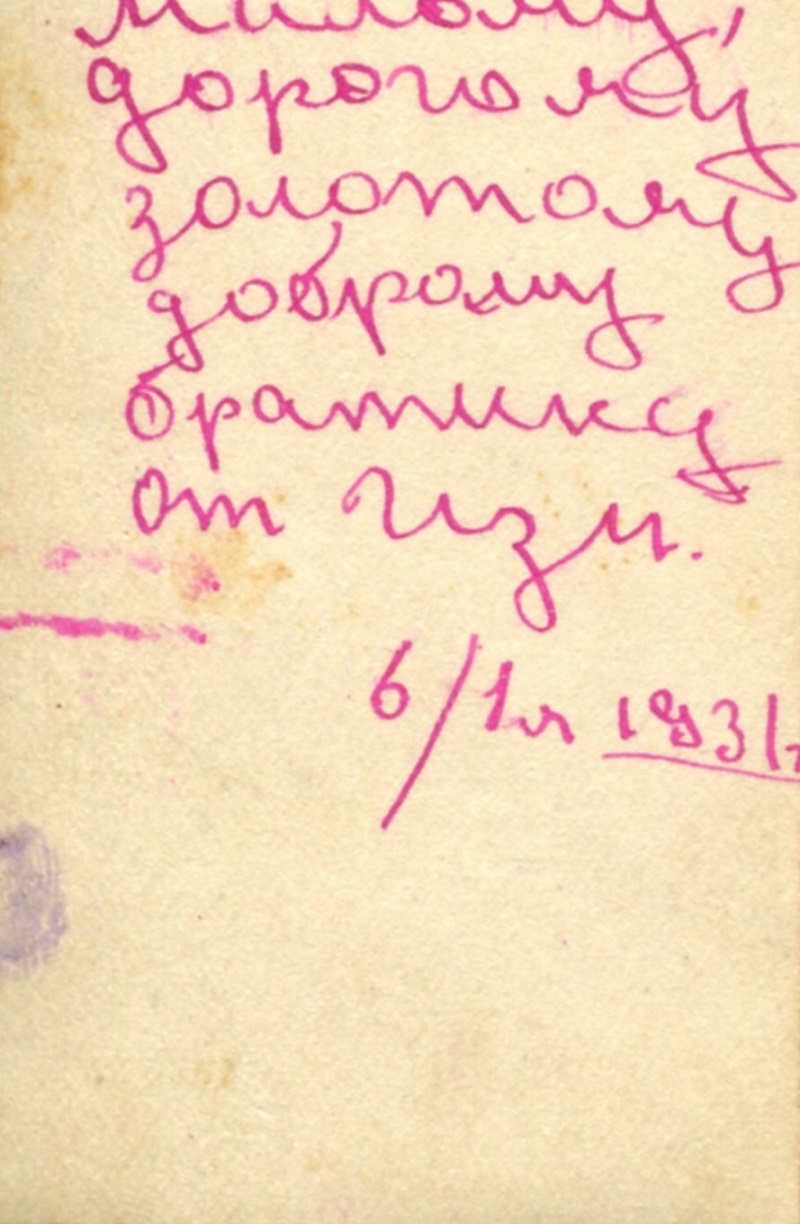 милому,
дорогому
золотому
доброму
братику
от Изи.
6/1я 1931г